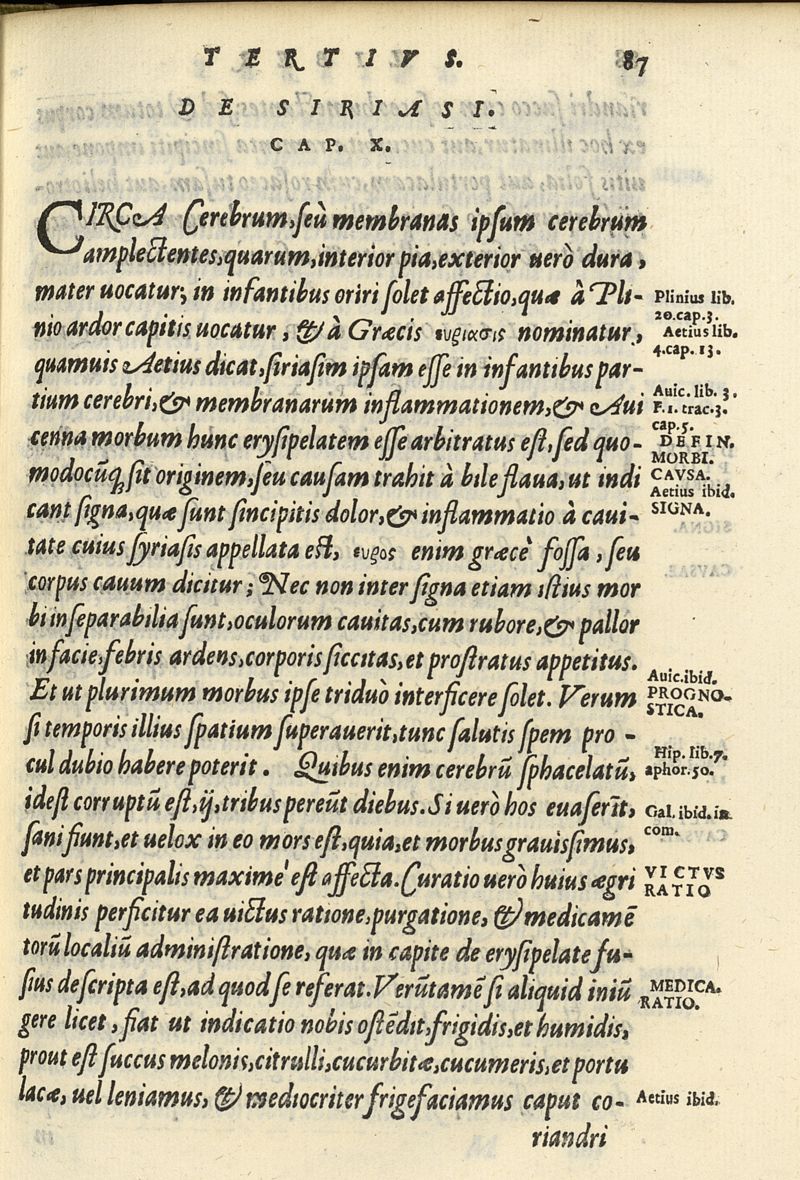 TERTIVS. 87
DE SIRIASI.
CAP. X.
CIRCA Cerebrum, seù membranas ipsum cerebrum
amplectentes, quarum, interior pia, exterior uerò dura,
mater uocatur, in infantibus oriri solet affectio, quæ à Pli-
nio ardor capitis uocatur, & à Græcis συριασις nominatur,
quamuis Aetius dicat, siriasim ipsam esse in infantibus par-
tium cerebri, & membranarum inflammationem, & Aui
cenna morbum hunc erysipelatem esse arbitratus est, sed quo-
modocūq; sit originem, seu causam trahit à bile flaua, ut indi
cant signa, quæ sunt sincipitis dolor, & inflammatio à caui-
tate cuius syriasis appellata est, συρος enim græcè fossa, seu
corpus cauum dicitur; Nec non inter signa etiam istius mor
bi inseparabilia sunt, oculorum cauitas, cum rubore, & pallor
in facie, febris ardens, corporis siccitas, et prostratus appetitus.
Et ut plurimum morbus ipse triduò interficere solet. Verum
si temporis illius spatium superauerit, tunc salutis spem pro-
cul dubio habere poterit. Quibus enim cerebrū sphacelatū,
idest corruptū est, ij, tribus pereūt diebus. Si uerò hos euaserīt,
sani fiunt, et uelox in eo mors est, quia, et morbus grauissimus,
et pars principalis maximè est affecta. Curatio uerò huius ægri
tudinis perficitur ea uictus ratione, purgatione, & medicamē
torū localiū administratione, quæ in capite de erysipelate fu-
sius descripta est, ad quod se referat. Verūtamē si aliquid iniū
gere licet, fiat ut indicatio nobis ostēdit, frigidis, et humidis,
prout est succus melonis, citrulli, cucurbitæ, cucumeris, et portu
lacæ, uel leniamus, & mediocriter frigefaciamus caput co-
riandri
Plinius lib.
20.cap.3.
Aetius lib.
4.cap.13.
Auic. lib. 3.
F.1. trac.3.
cap.5.
DEFIN.
MORBI.
CAVSA.
Aetius ibid.
SIGNA.
Auic.ibid.
PROGNO-
STICA.
Hip. lib.7.
aphor.50.
Gal. ibid. in
com.
VICTVS
RATIO
MEDICA.
RATIO.
Aetius ibid.